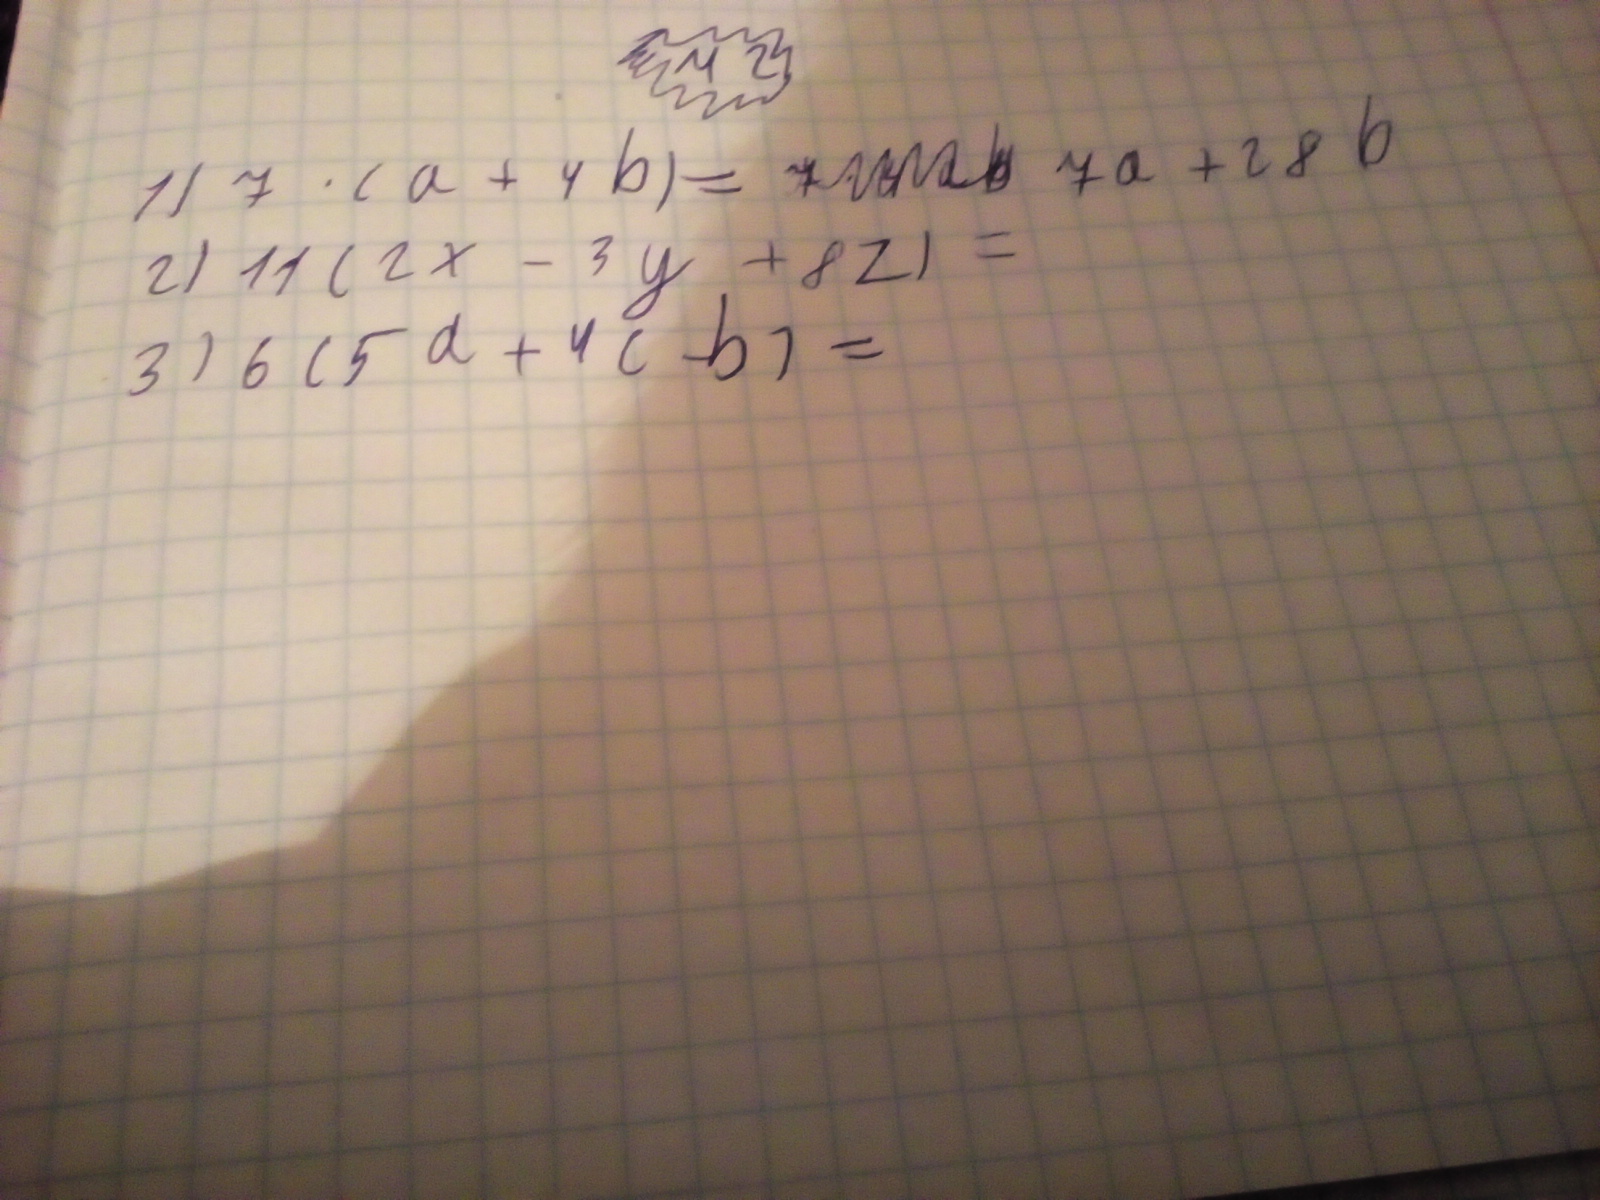 № 2
1) 7 · (a + 4b) = 7a + 28b
2) 11(2x - 3y + 8z) =
3) 6(5d + 4c - b) =